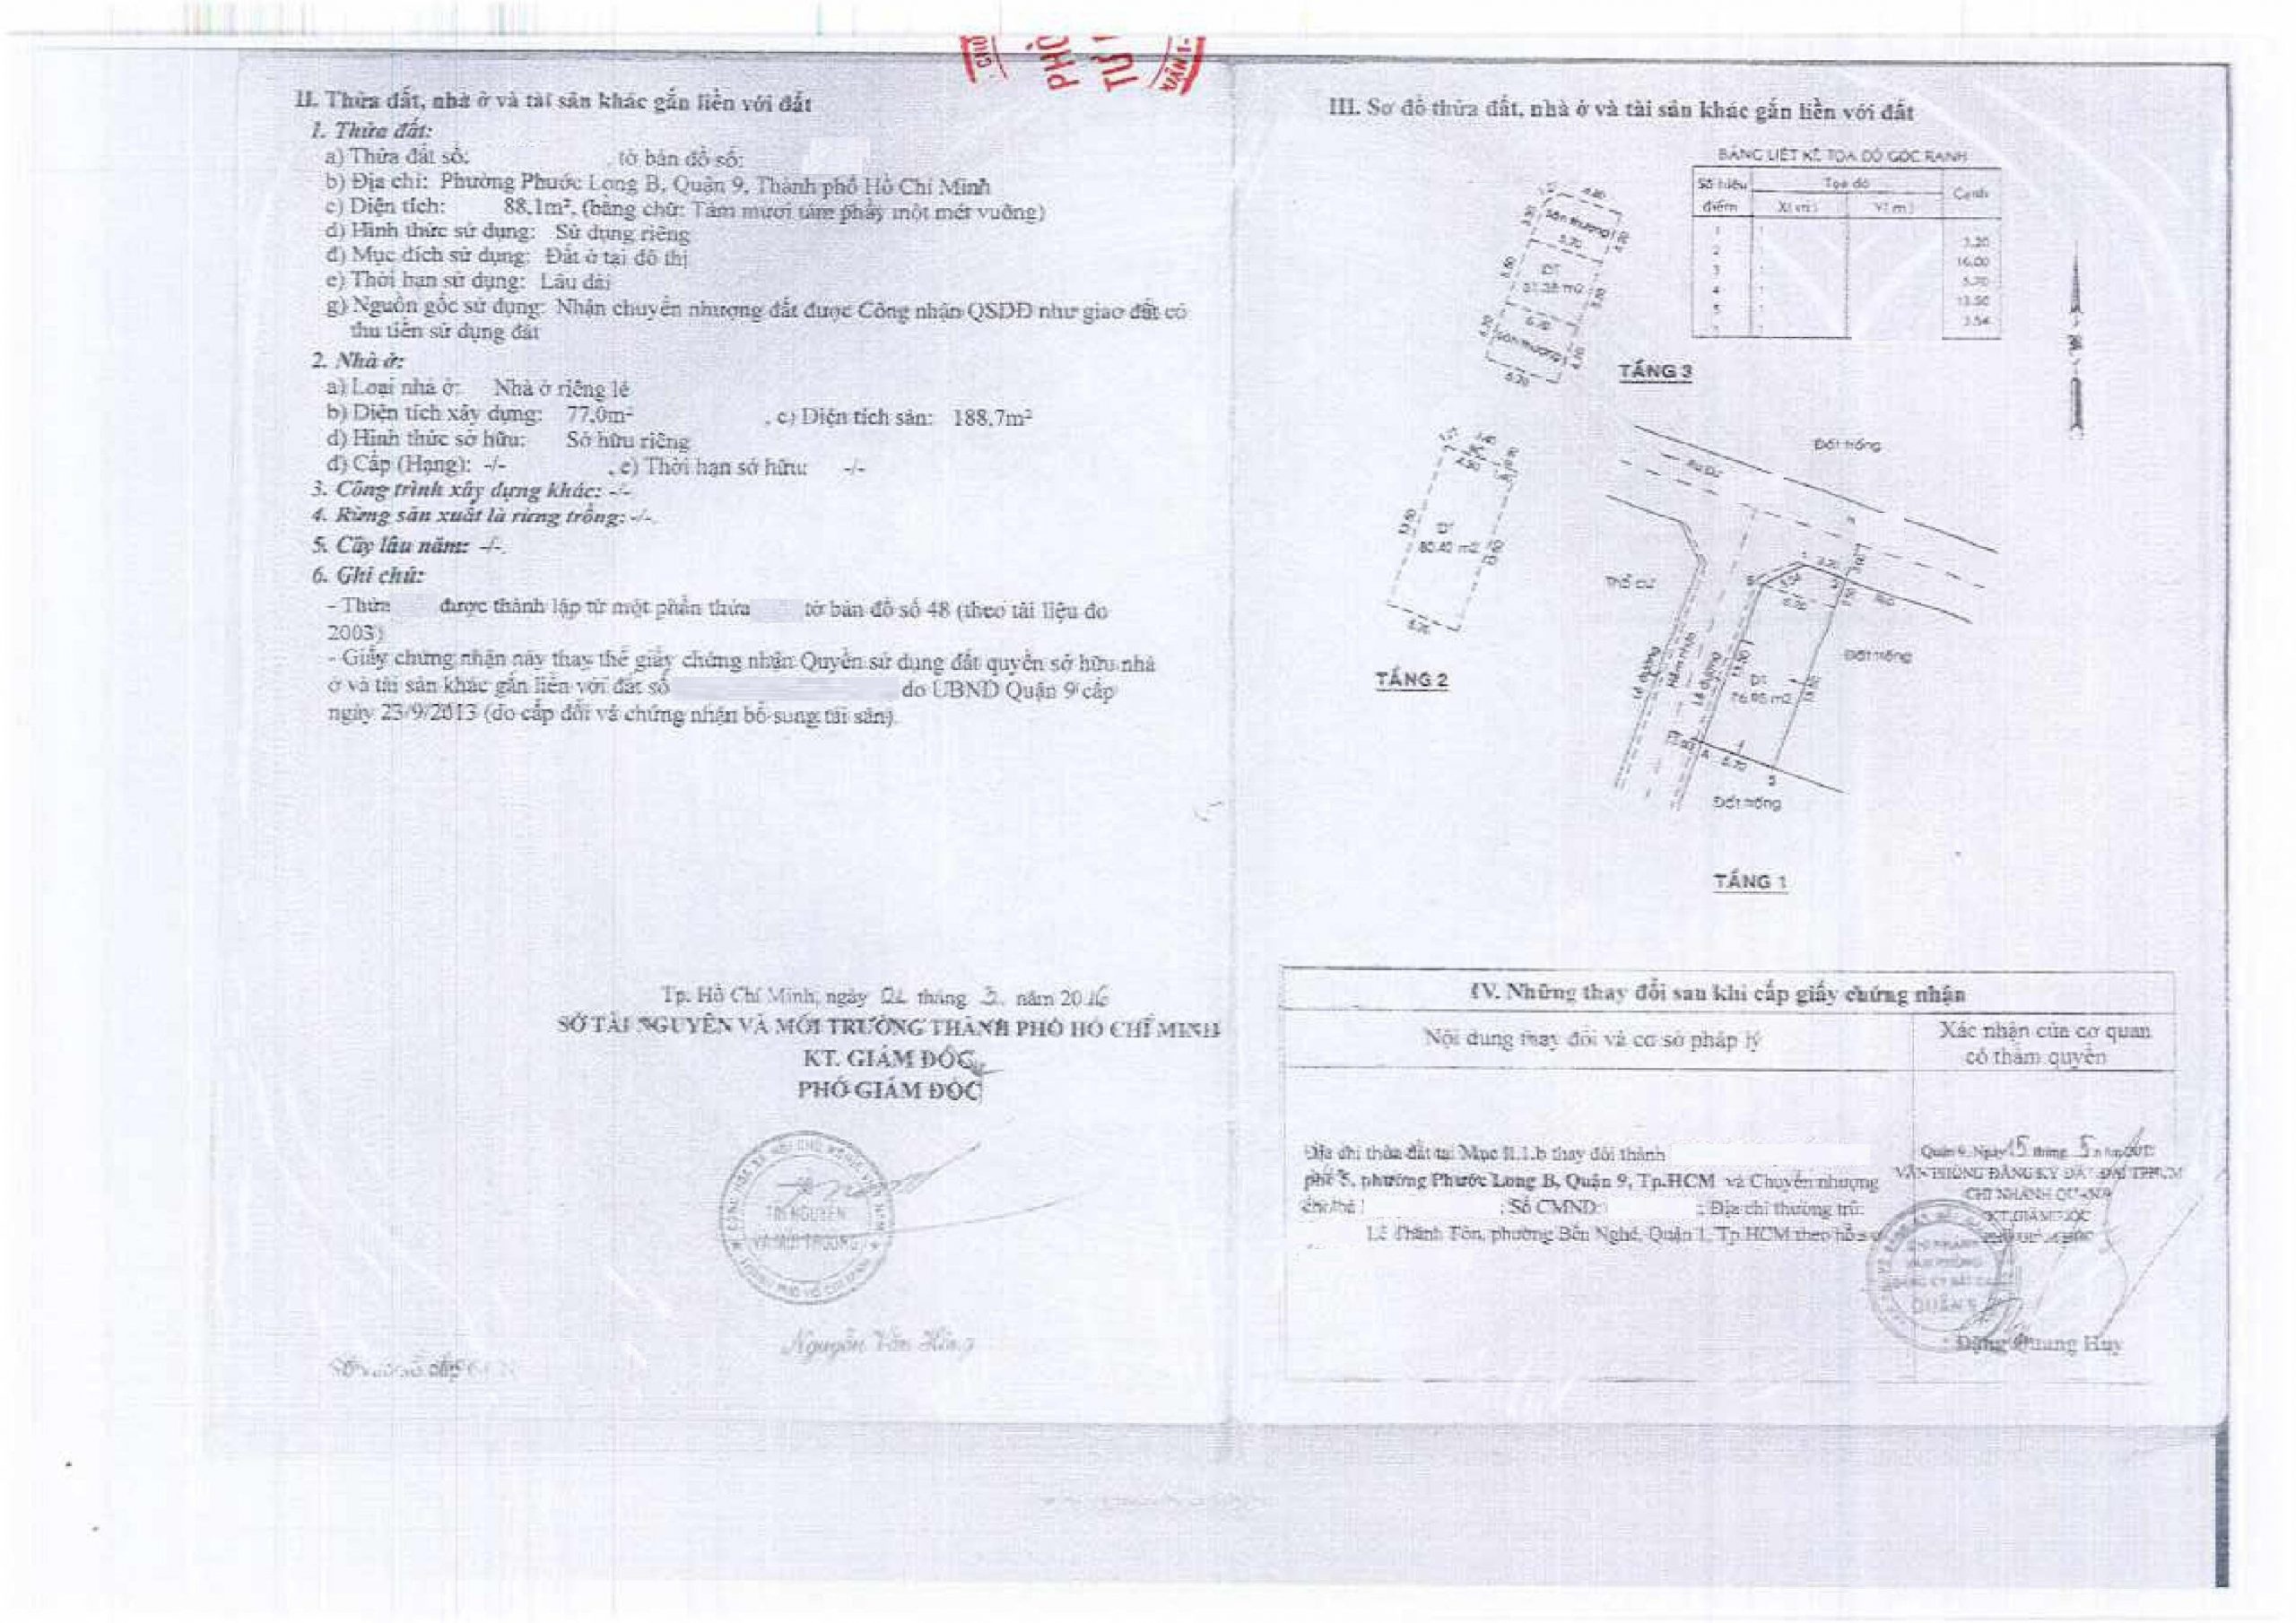 II. Thửa đất, nhà ở và tài sản khác gắn liền với đất
1. Thửa đất:
a) Thửa đất số: , tờ bản đồ số:
b) Địa chỉ: Phường Phước Long B, Quận 9, Thành phố Hồ Chí Minh
c) Diện tích: 88,1m², (bằng chữ: Tám mươi tám phẩy một mét vuông)
d) Hình thức sử dụng: Sử dụng riêng
đ) Mục đích sử dụng: Đất ở tại đô thị
e) Thời hạn sử dụng: Lâu dài
g) Nguồn gốc sử dụng: Nhận chuyển nhượng đất được Công nhận QSDĐ như giao đất có
thu tiền sử dụng đất
2. Nhà ở:
a) Loại nhà ở: Nhà ở riêng lẻ
b) Diện tích xây dựng: 77,0m² , c) Diện tích sàn: 188,7m²
d) Hình thức sở hữu: Sở hữu riêng
đ) Cấp (Hạng): -/- , e) Thời hạn sở hữu: -/-
3. Công trình xây dựng khác: -/-
4. Rừng sản xuất là rừng trồng: -/-.
5. Cây lâu năm: -/-.
6. Ghi chú:
- Thửa được thành lập từ một phần thửa tờ bản đồ số 48 (theo tài liệu đo
2003)
- Giấy chứng nhận này thay thế giấy chứng nhận Quyền sử dụng đất quyền sở hữu nhà
ở và tài sản khác gắn liền với đất số do UBND Quận 9 cấp
ngày 23/9/2013 (do cấp đổi và chứng nhận bổ sung tài sản).
Tp. Hồ Chí Minh, ngày tháng năm 2016
SỞ TÀI NGUYÊN VÀ MÔI TRƯỜNG THÀNH PHỐ HỒ CHÍ MINH
KT. GIÁM ĐỐC
PHÓ GIÁM ĐỐC
TÀI NGUYÊN
VÀ MÔI TRƯỜNG
Nguyễn Văn Hồng
III. Sơ đồ thửa đất, nhà ở và tài sản khác gắn liền với đất
BẢNG LIỆT KÊ TỌA ĐỘ GÓC RANH
Số hiệu điểm
Tọa độ
X(m) Y(m)
Cạnh
1
2
3
4
5
1
3.20
16.00
5.70
13.50
3.54
Sân thượng
5.70
ĐT
Sân thượng
TẦNG 3
ĐT
80.40 m2
TẦNG 2
Đất trống
Thổ cư
Lề đường
Hẻm nhựa
Lề đường
Đất trống
ĐT
76.95 m2
5.70
Đất trống
TẦNG 1
IV. Những thay đổi sau khi cấp giấy chứng nhận
Nội dung thay đổi và cơ sở pháp lý
Xác nhận của cơ quan
có thẩm quyền
Địa chỉ thửa đất tại Mục II.1.b thay đổi thành
phố 5, phường Phước Long B, Quận 9, Tp.HCM và Chuyển nhượng
; Số CMND: ; Địa chỉ thường trú:
Lê Thánh Tôn, phường Bến Nghé, Quận 1, Tp.HCM theo hồ sơ
Quận 9, Ngày 15 tháng 5
VĂN PHÒNG ĐĂNG KÝ ĐẤT ĐAI TPHCM
CHI NHÁNH QUẬN 9
KT.GIÁM ĐỐC
PHÓ GIÁM ĐỐC
CHI NHÁNH
VĂN PHÒNG
ĐĂNG KÝ ĐẤT ĐAI
QUẬN 9
Đặng Quang Huy